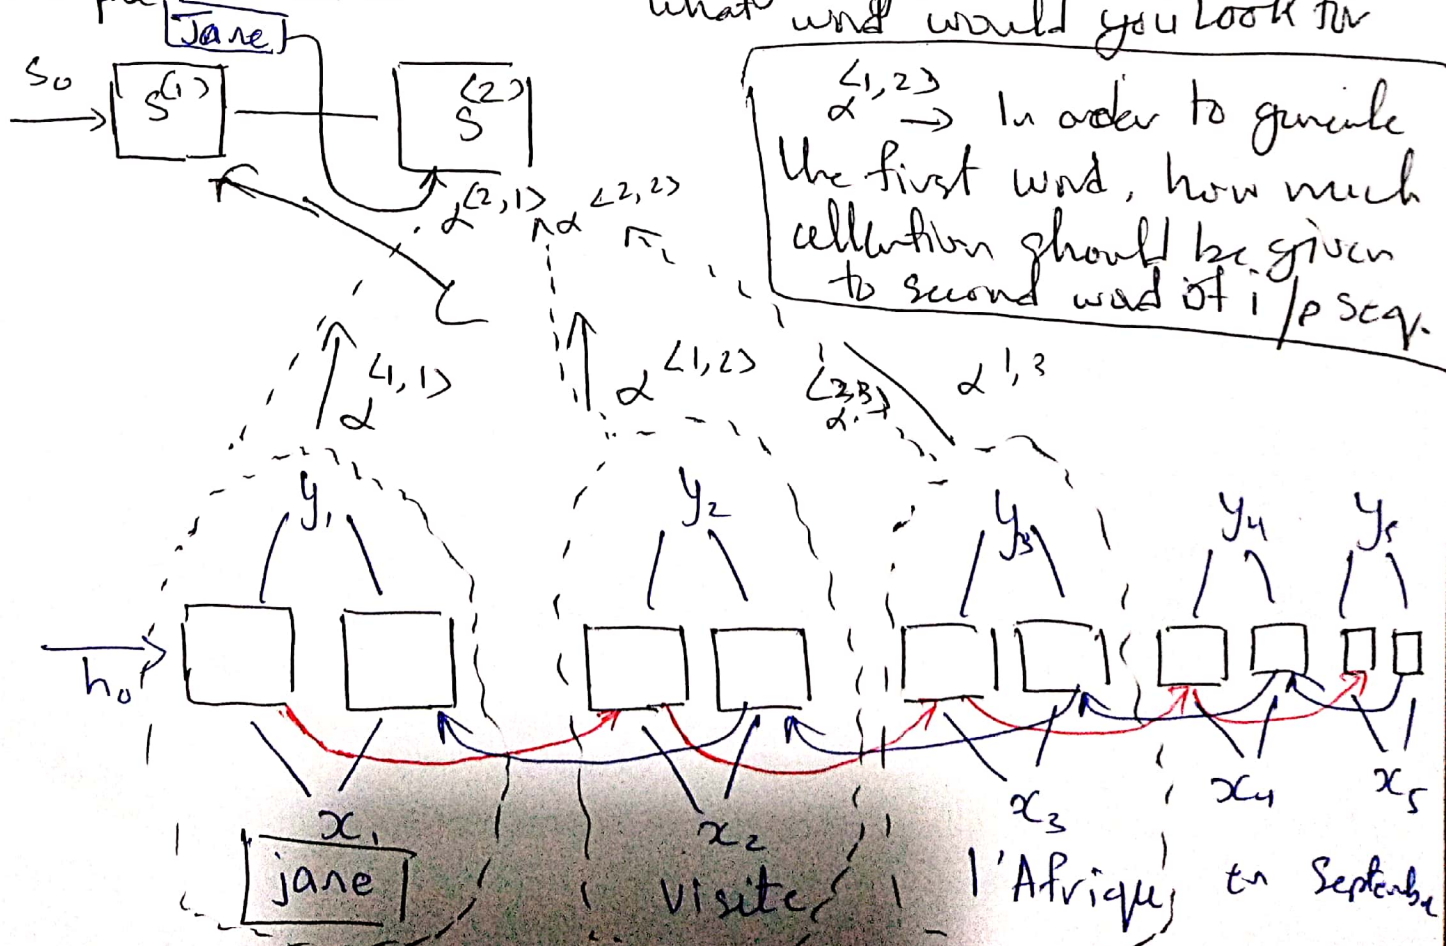 what word would you Look for
Jane
S₀
S⟨1⟩
S⟨2⟩
α⟨1,2⟩ → In order to generate
the first word, how much
attention should be given
to second word of i/p seq.
α⟨2,1⟩
α⟨2,2⟩
C
α⟨1,1⟩
α⟨1,2⟩
α1,3
y₁ y₂ y₃ y₄ y₅
h₀
x₁ x₂ x₃ x₄ x₅
jane visite l'Afrique en Septembre